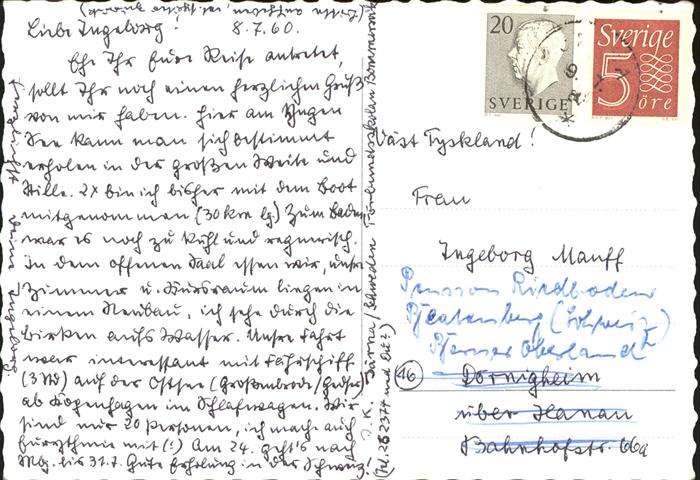 Liebe Ingeborg! 8.7.60.
Ehe Ihr Eure Reise antretet,
sollt Ihr noch einen herzlichen Gruß
von mir haben. Hier am
See kann man sich bestimmt
erholen in der großen Weite und
Stille. 2x bin ich bisher mit dem Boot
mitgenommen (30 km lg.) Zum Baden
war es noch zu kühl und regnerisch.
In dem offenen Saal essen wir, unsre
Zimmer u. Kursraum liegen in
einem Neubau, ich sehe durch die
Birken aufs Wasser. Unsre Fahrt
war interessant mit Fährschiff
(3 Std) auf der Ostsee (Großenbrode/Gedser)
ab Kopenhagen im Schlafwagen. Wir
sind nur 20 Personen, ich mache auch
Eurythmie mit (!) Am 24. geht's nach
Mbg. bis 31.7. Gute Erholung in der Schweiz!
Järna/Schweden
20
SVERIGE
Sverige
5
öre
Väst Tyskland!
Frau
Ingeborg Mauff
Pension Riedboden
Beatenberg (Schweiz)
Berner Oberland
(16) Dörnigheim
über Hanau
Bahnhofstr. 66a